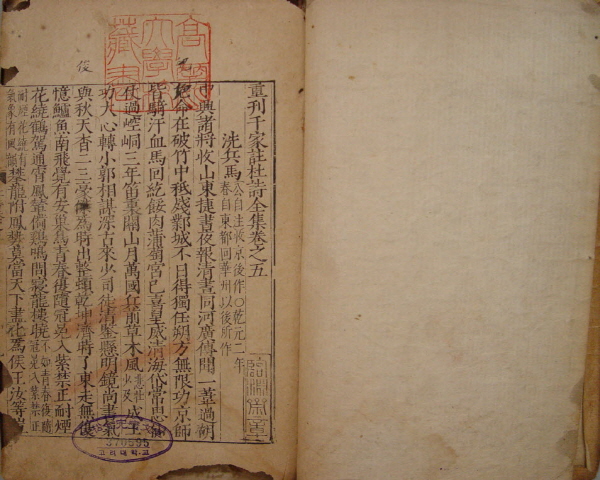 高麗大學校藏書
重刊千家註杜詩全集卷之五
洗兵馬 公自注收京後作○乾元二年
春自東都回華州以後所作
中興諸將收山東捷書夜報清晝同河廣傳聞一葦過胡
危命在破竹中秪殘鄴城不日得獨任朔方無限功京師
皆騎汗血馬回紇餧肉蒲萄宮已喜皇威清海岱常思仙
仗過崆峒三年笛裏關山月萬國兵前草木風 成王
功大心轉小郭相謀深古來少司徒清鑒懸明鏡尚書氣
與秋天杳二三豪俊為時出整頓乾坤濟時了東走無復
憶鱸魚南飛覺有安巢鳥青春復隨冠冕入紫禁正耐煙
花繞鶴駕通宵鳳輦備鷄鳴問寢龍樓曉 不如青春復隨
冠冕入紫禁正
攀龍附鳳勢莫當天下盡化為侯王汝等
고려대학교